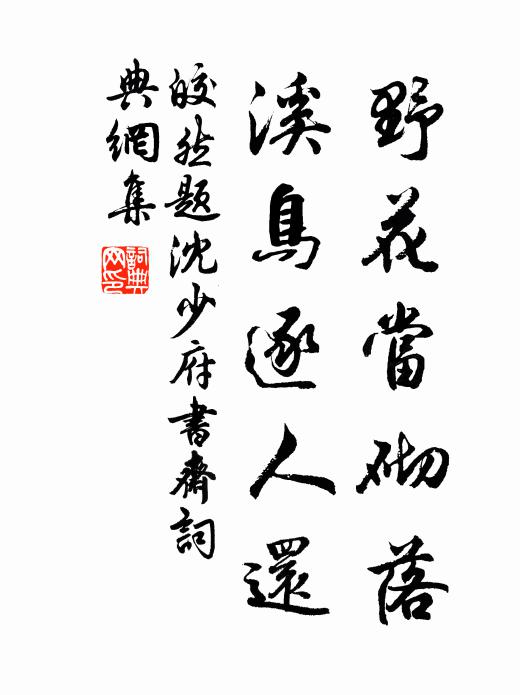 野花當砌落
溪鳥逐人還
皎然題沈少府書齋詞
典網集
詞典
网印